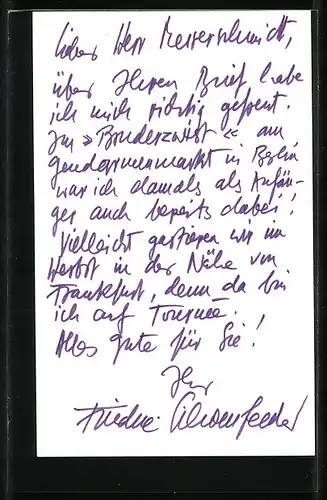 Lieber Herr Messerschmidt,
über Ihren Brief habe
ich mich richtig gefreut.
Im »Bruderzwist« am
Gendarmenmarkt in Berlin
war ich damals als Anfän-
ger auch bereits dabei!
Vielleicht gastieren wir im
Herbst in der Nähe von
Frankfurt, denn da bin
ich auf Tournee.
Alles Gute für Sie!
Ihr